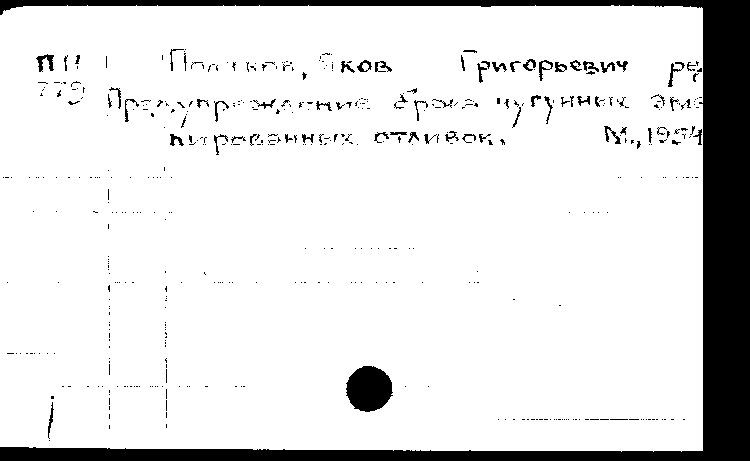 П11 Поляков, Яков Григорьевич ре
779 Предупреждение брака чугунных эма
лированных отливок. М., 1954